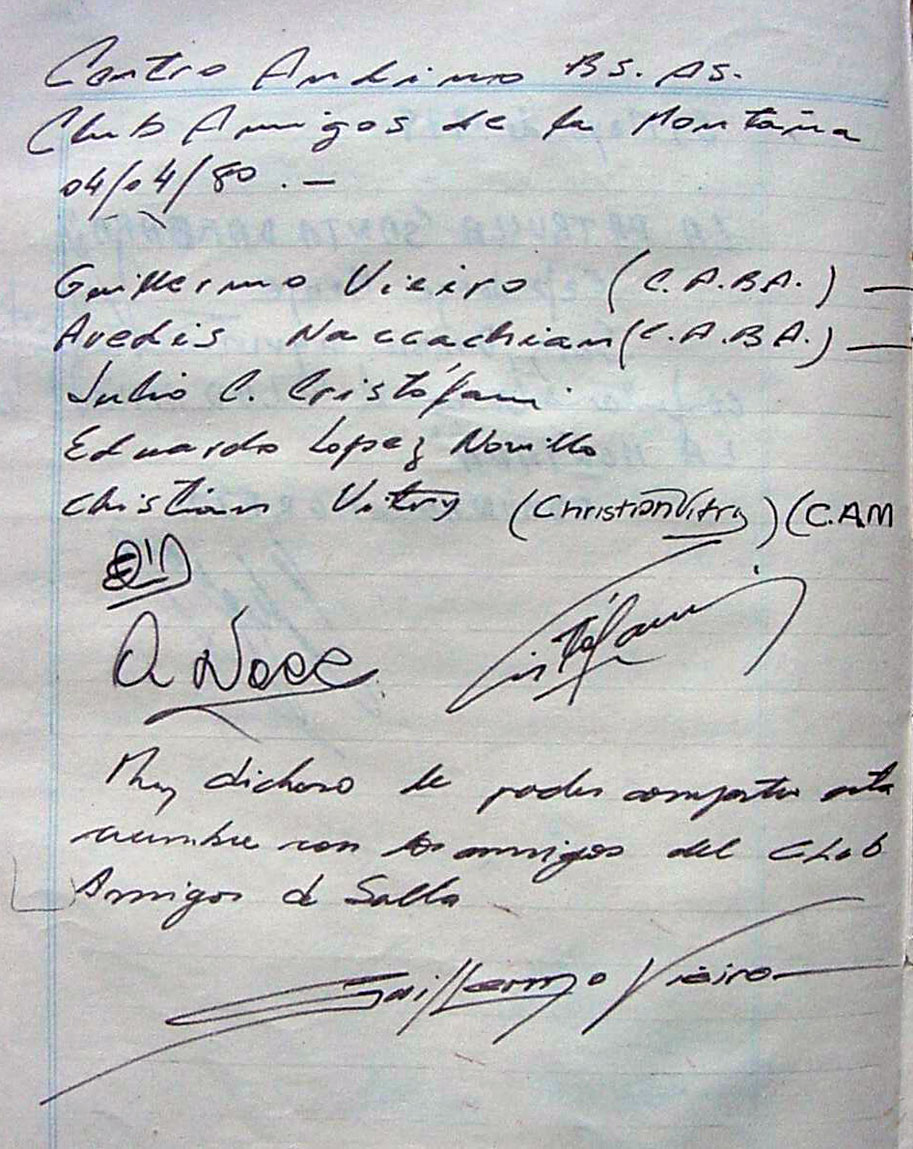 Centro Andino Bs. As.
Club Amigos de la Montaña
04/04/80.—
Guillermo Vieiro (C.A.BA.) —
Avedis Naccachian (C.A.BA.) —
Julio C. Cristófani
Eduardo Lopez Novillo
Christian Vitry (Christian Vitry) (C.A.M
A Nacc
Cristófani
Muy dichoso de poder compartir esta
cumbre con los amigos del Club
Amigos de Salta
Guillermo Vieiro